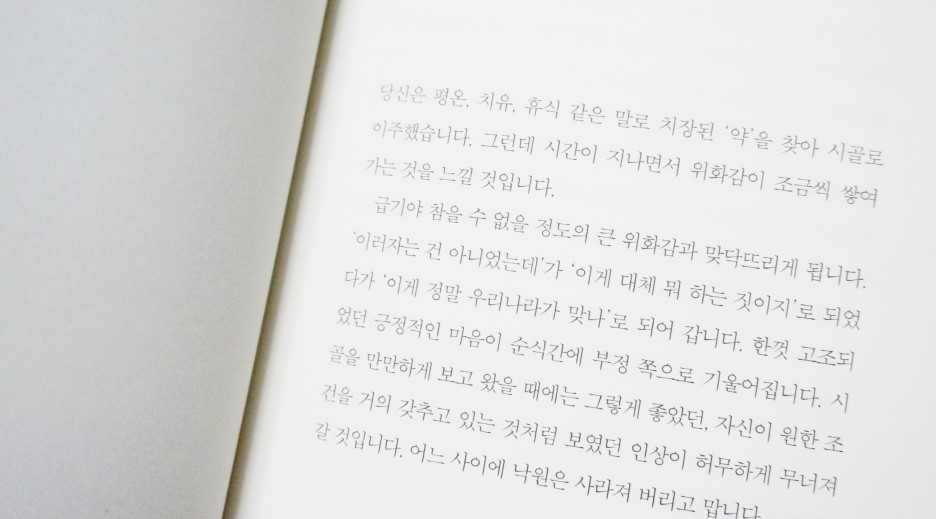 당신은 평온, 치유, 휴식 같은 말로 치장된 ‘약’을 찾아 시골로
이주했습니다. 그런데 시간이 지나면서 위화감이 조금씩 쌓여
가는 것을 느낄 것입니다.
급기야 참을 수 없을 정도의 큰 위화감과 맞닥뜨리게 됩니다.
‘이러자는 건 아니었는데’가 ‘이게 대체 뭐 하는 짓이지’로 되었
다가 ‘이게 정말 우리나라가 맞나’로 되어 갑니다. 한껏 고조되
었던 긍정적인 마음이 순식간에 부정 쪽으로 기울어집니다. 시
골을 만만하게 보고 왔을 때에는 그렇게 좋았던, 자신이 원한 조
건을 거의 갖추고 있는 것처럼 보였던 인상이 허무하게 무너져
갈 것입니다. 어느 사이에 낙원은 사라져 버리고 맙니다.